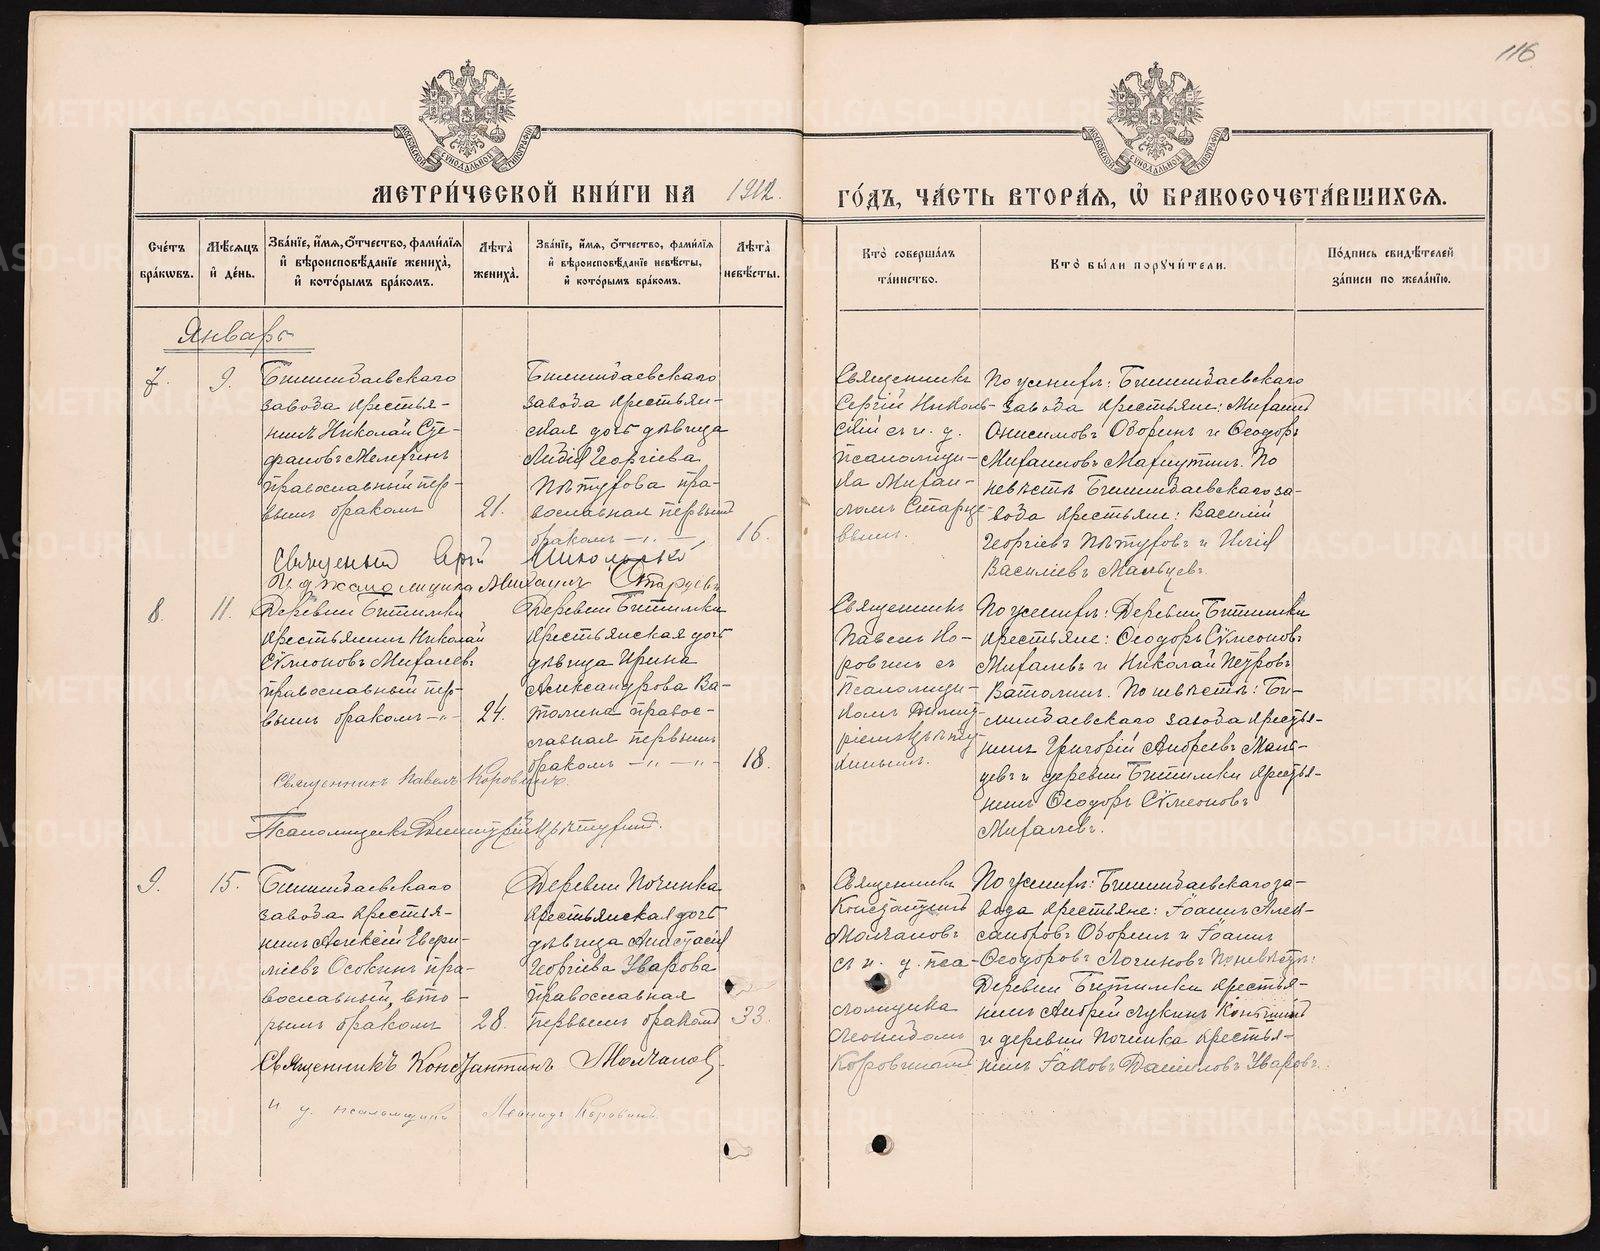 116
МОСКОВСКОЙ СѴНОДАЛЬНОЙ ТИПОГРАФІИ
МОСКОВСКОЙ СѴНОДАЛЬНОЙ ТИПОГРАФІИ
МЕТРИ́ЧЕСКОЙ КНИ́ГИ НА 1912.
ГО́ДЪ, ЧА́СТЬ ВТОРА́Ѧ, Ѡ҆ БРАКОСОЧЕТА́ВШИХСѦ.
Сче́тъ бра́кѡвъ.
Мѣ́сѧцъ и҆ де́нь.
Зва́нїе, и҆́мѧ, ѻ҆́тчество, фамѝлїѧ и҆ вѣроисповѣ́данїе жениха̀, и҆ кото́рымъ бра́комъ.
Лѣ́та жениха̀.
Зва́нїе, и҆́мѧ, ѻ҆́тчество, фамѝлїѧ и҆ вѣроисповѣ́данїе невѣ́сты, и҆ кото́рымъ бра́комъ.
Лѣ́та невѣ́сты.
Кто̀ соверша́лъ та́инство.
Кто̀ бы́ли порꙋчи́тели.
По́дпись свидѣ́телей за́писи по жела́нїю.
Январь
7.
9.
Билимбаевскаго
завода крестья-
нинъ Николай Сте-
фановъ Мелехинъ
православный пер-
вымъ бракомъ
21.
Билимбаевскаго
завода крестьян-
ская дочь дѣвица
Лидія Георгіева
Пѣтухова пра-
вославная первымъ
бракомъ — „ —
16.
Священникъ
Сергій Николь-
скій съ и. д.
псаломщи-
ка Михаи-
ломъ Старце-
вымъ.
По женихѣ: Билимбаевскаго
завода крестьяне: Михаилъ
Онисимовъ Оборинъ и Ѳеодоръ
Михаиловъ Махнутинъ. По
невѣстѣ Билимбаевскаго за-
вода крестьяне: Василій
Георгіевъ Пѣтуховъ и Илія
Василіевъ Мальцевъ.
Священникъ Сергій Никольскій
И. д. псаломщика Михаилъ Старцевъ
8.
11.
Деревни Битимки
крестьянинъ Николай
Сѵмеоновъ Михалевъ
православный пер-
вымъ бракомъ — „ —
24.
Деревни Битимки
крестьянская дочь
дѣвица Ирина
Александрова Ва-
толина правос-
лавная первымъ
бракомъ — „ — „ —
18.
Священникъ
Павелъ Ко-
ровинъ съ
псаломщи-
комъ Димит-
ріемъ Цвѣту-
хинымъ.
По женихѣ: Деревни Битимки
крестьяне: Ѳеодоръ Сѵмеоновъ
Михалевъ и Николай Петровъ
Ватолинъ. По невѣстѣ: Би-
лимбаевскаго завода крестья-
нинъ Григорій Андреевъ Маль-
цевъ и деревни Битимки крестья-
нинъ Ѳеодоръ Сѵмеоновъ
Михалевъ.
Священникъ Павелъ Коровинъ.
Псаломщикъ Димитрій Цвѣтухинъ.
9.
15.
Билимбаевскаго
завода крестья-
нинъ Алексій Евфи-
міевъ Осокинъ пра-
вославный, вто-
рымъ бракомъ
28.
Деревни Починка
крестьянская дочь
дѣвица Анастасія
Георгіева Уварова
православная
первымъ бракомъ
33.
Священникъ
Константинъ
Молчановъ
съ и. д. пса-
ломщика
Леонидомъ
Коровинымъ
По женихѣ: Билимбаевскаго за-
вода крестьяне: Іоаннъ Алек-
сандровъ Оборинъ и Іоаннъ
Ѳеодоровъ Логиновъ По невѣстѣ:
Деревни Битимки крестья-
нинъ Андрей Лукинъ
и деревни Починка крестья-
нинъ Іаковъ Даниловъ Уваровъ.
Священникъ Константинъ Молчановъ.
и д. псаломщика Леонидъ Коровинъ